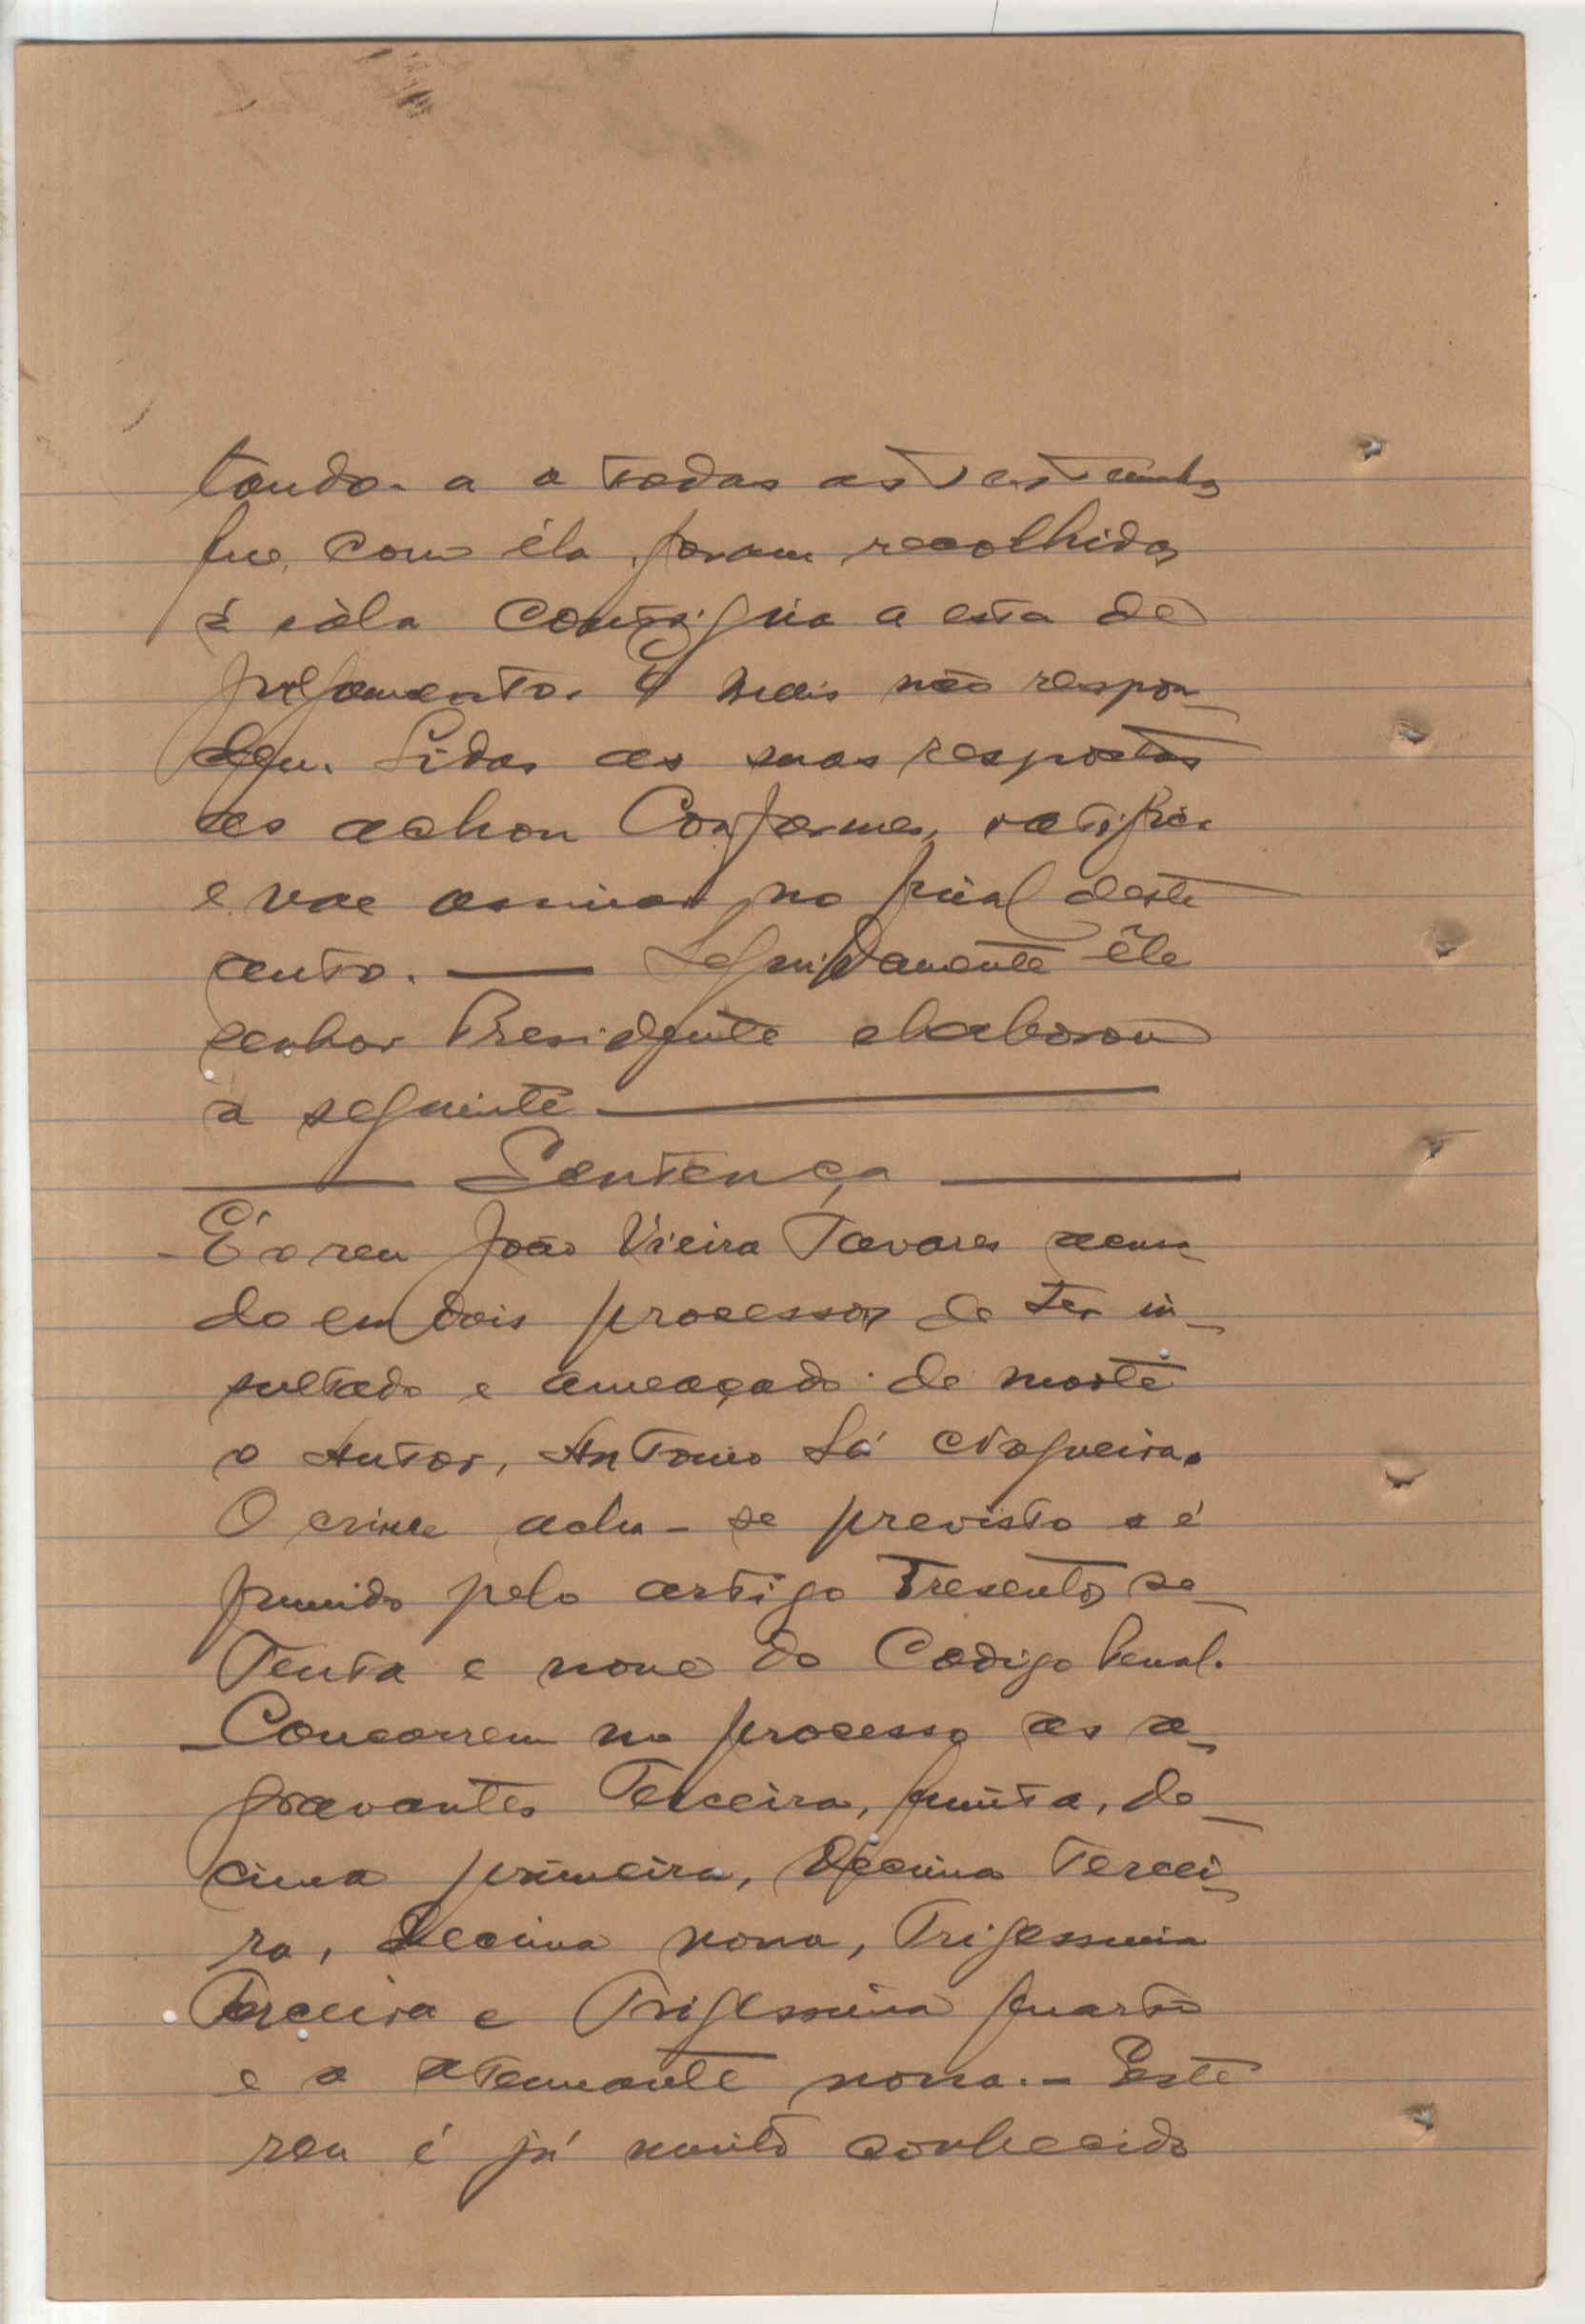 tando-a a todas as testemunhas
que com éla foram recolhidas
á sála contigúa a esta de
julgamento. E mais não respon-
deu. Lidas as suas respostas
as achou conformes, ratifica
e vae assinar no final deste
auto. — Seguidamente êle
senhor Presidente elaborou
a seguinte —
— Sentença —
- É o reu João Vieira Tavares acusa-
do em dois processos de ter in-
sultado e ameaçado de morte
o Autor, Antonio Sá Nogueira.
O crime acha-se previsto e é
punido pelo artigo tresentos se-
tenta e nove do Codigo Penal.
- Concorrem no processo as a-
gravantes terceira, quinta, de-
cima primeira, decima tercei-
ra, decima nona, trigessima
terceira e trigessima quarta
e a atenuante nona. - Este
reu é já muito conhecido